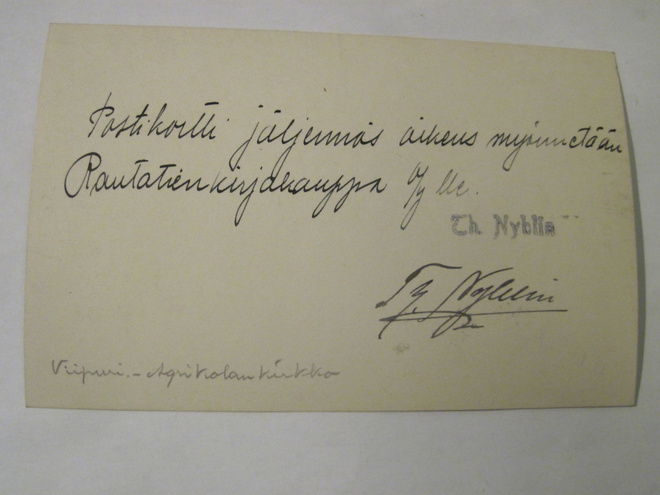 Postikortti jäljennös oikeus myönnetään
Rautatienkirjakauppa O/Y lle.
Th. Nyblin
Th. Nyblin
Viipuri. - Agrikolan kirkko